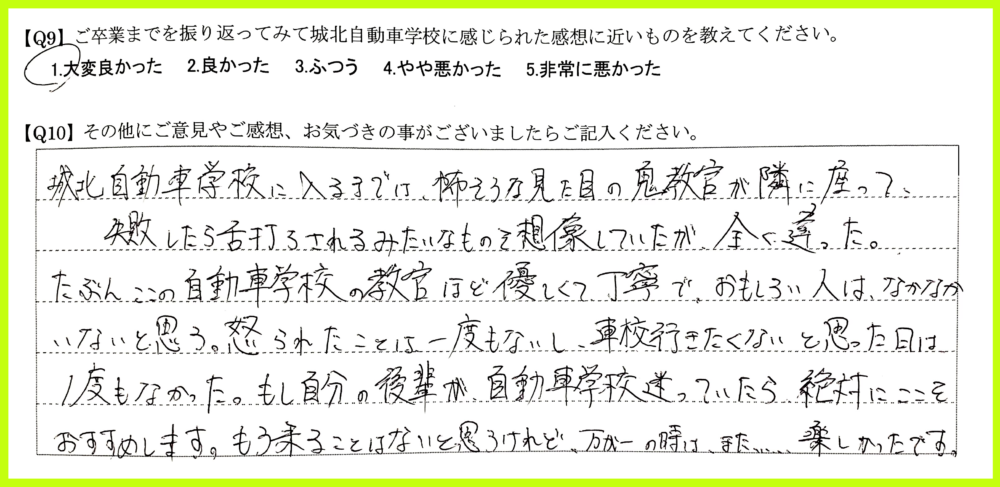 【Q9】ご卒業までを振り返ってみて城北自動車学校に感じられた感想に近いものを教えてください。
1.大変良かった 2.良かった 3.ふつう 4.やや悪かった 5.非常に悪かった
【Q10】その他にご意見やご感想、お気づきの事がございましたらご記入ください。
城北自動車学校に入るまでは、怖そうな見た目の鬼教官が隣に座って、
失敗したら舌打ちされるみたいなものを想像していたが、全く違った。
たぶんここの自動車学校の教官ほど優しくて丁寧で、おもしろい人は、なかなか
いないと思う。怒られたことは一度もないし、車校行きたくないと思った日は
1度もなかった。もし自分の後輩が、自動車学校迷っていたら、絶対にここを
おすすめします。もう来ることはないと思うけれど、万が一の時は、また……楽しかったです。